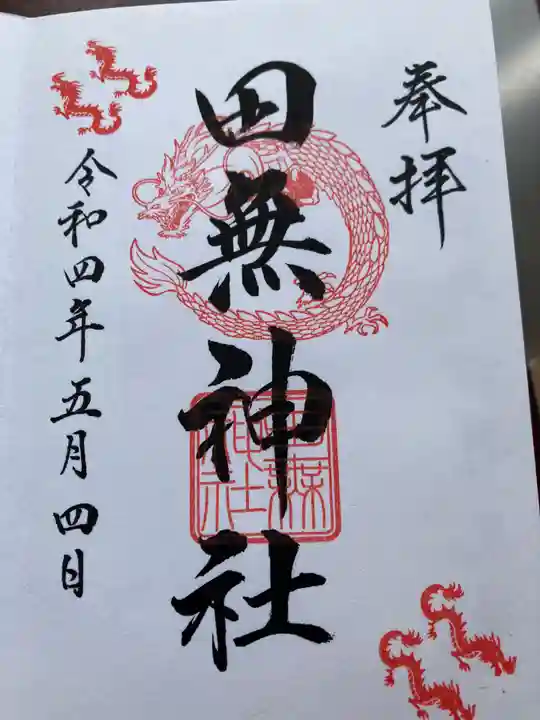 奉拝
田無神社
令和四年五月四日
田無神社